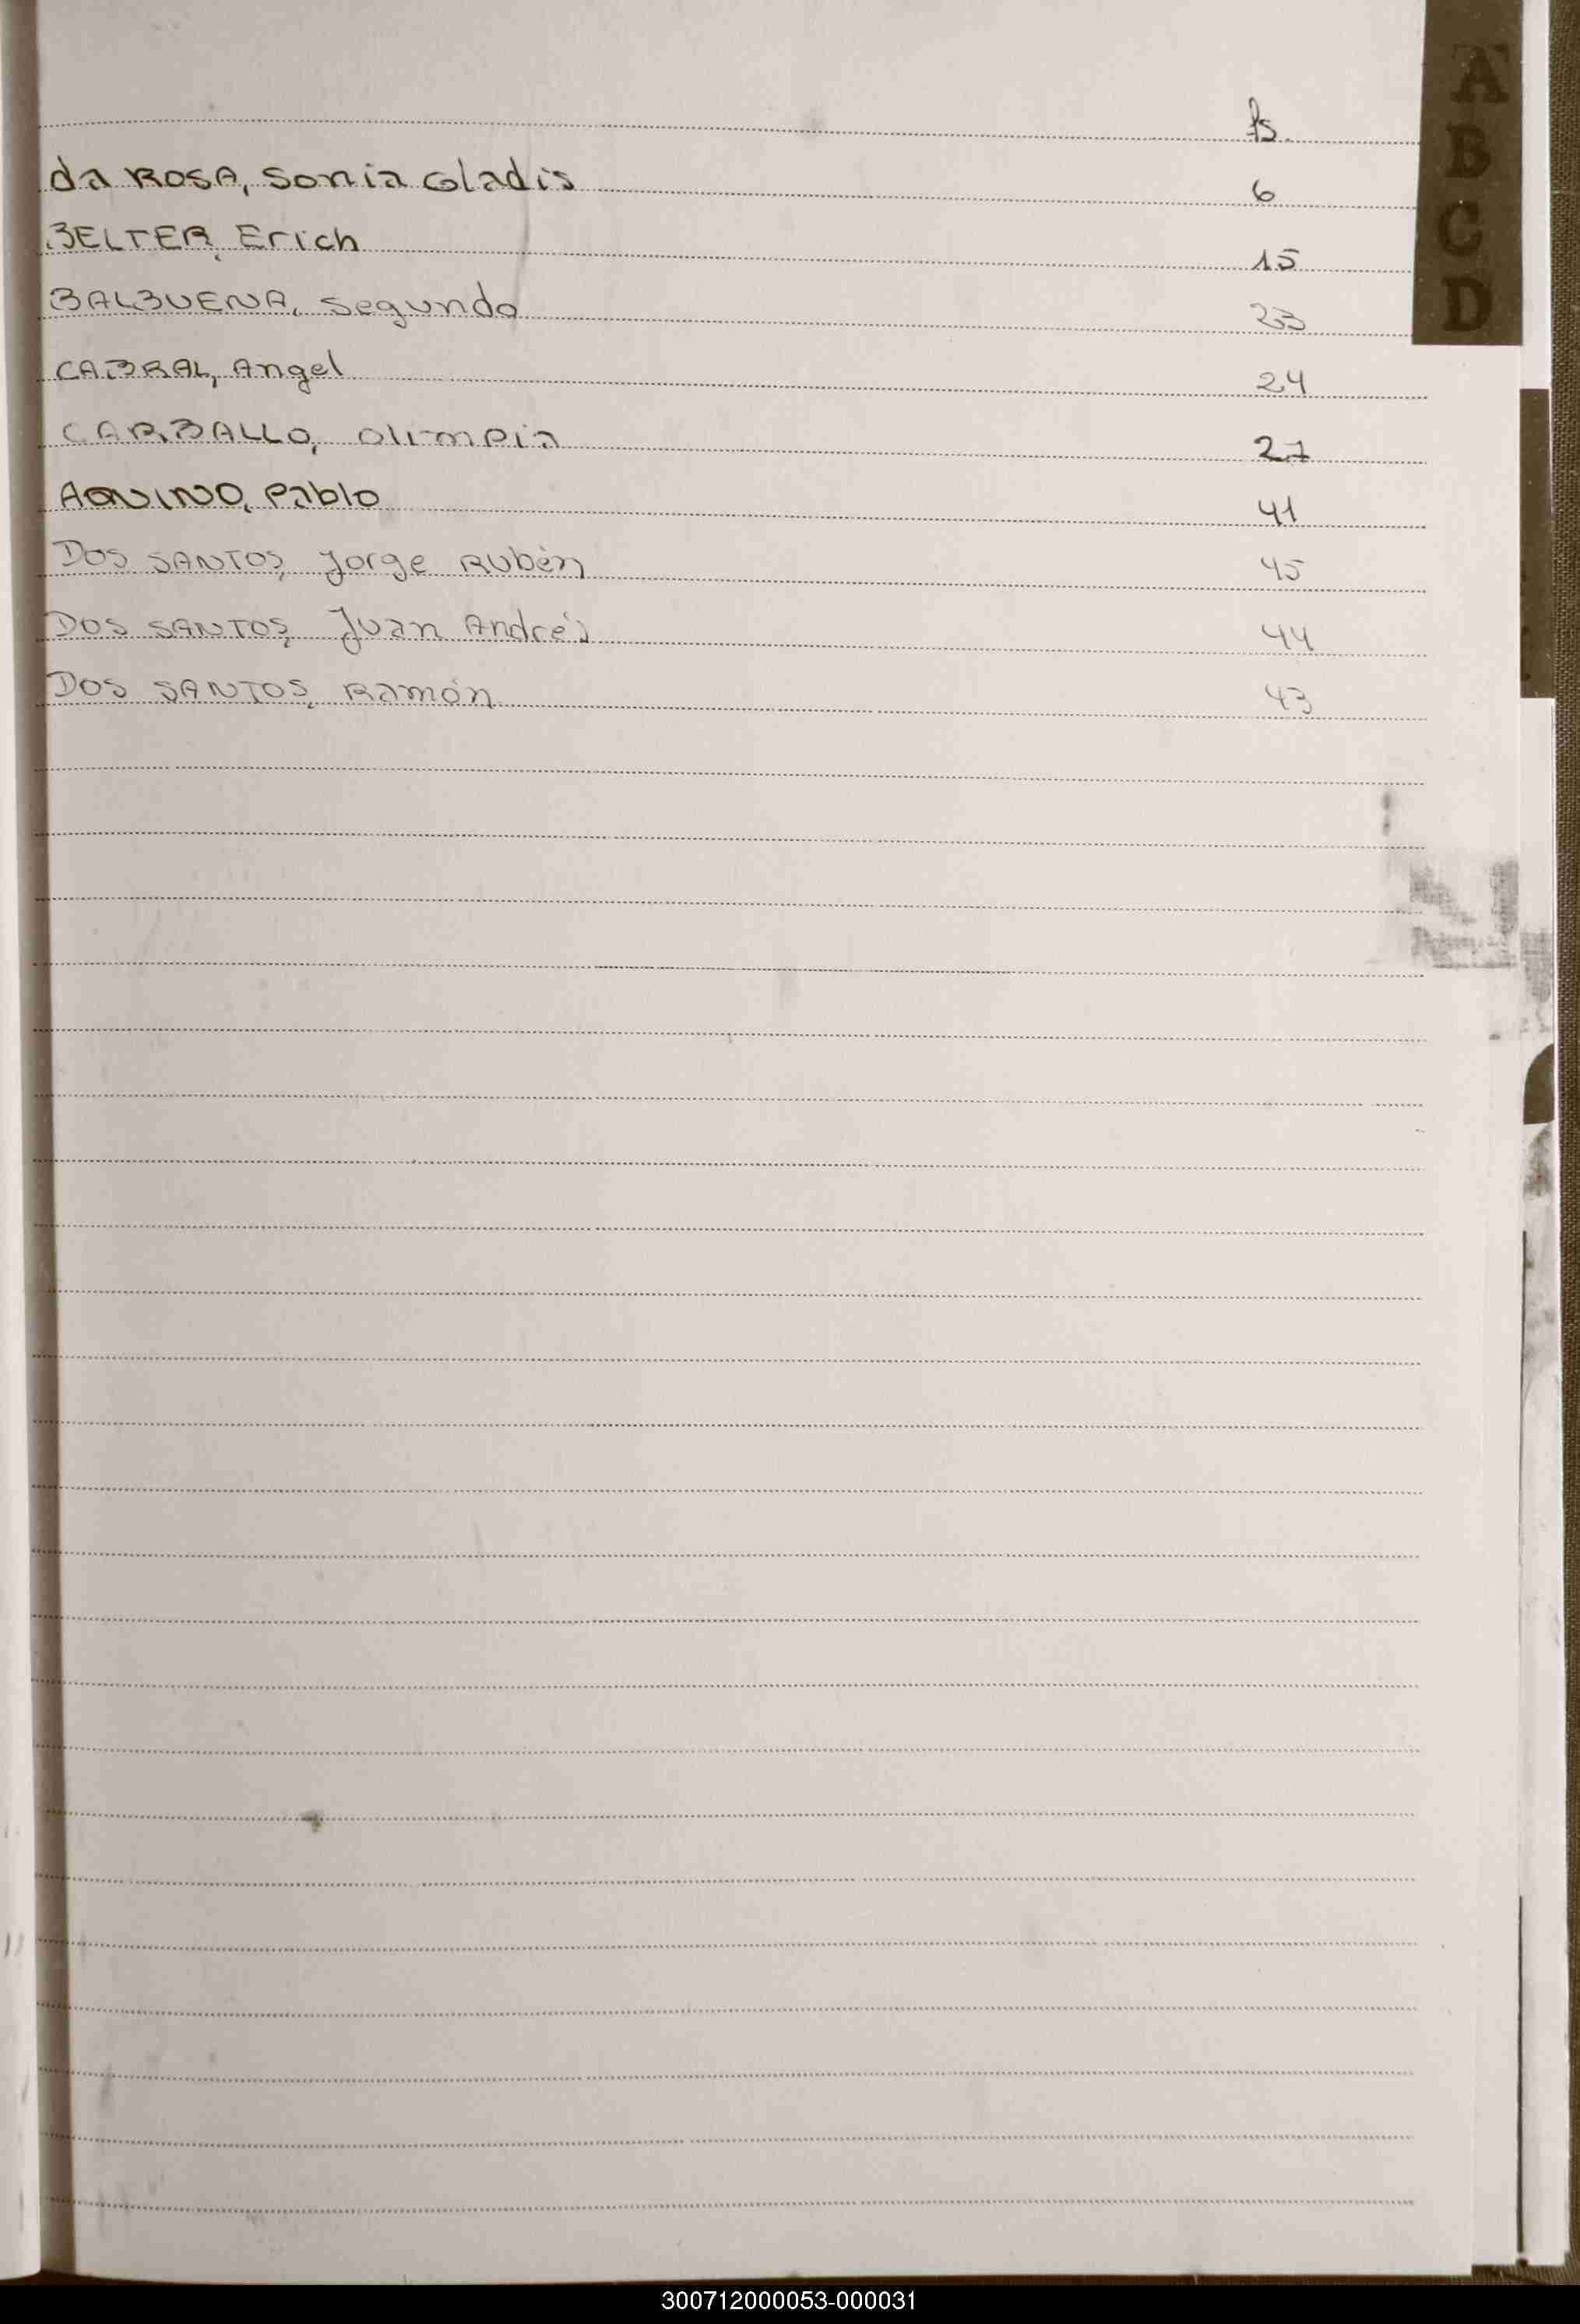 fs.
da ROSA, Sonia Gladis 6
BELTER, Erich 15
BALBUENA, Segundo 23
CABRAL, Angel 24
CARBALLO, Olimpia 27
AQUINO, Pablo 41
DOS SANTOS, Jorge Rubén 45
DOS SANTOS, Juan Andrés 44
DOS SANTOS, Ramón 43
A
B
C
D
300712000053-000031